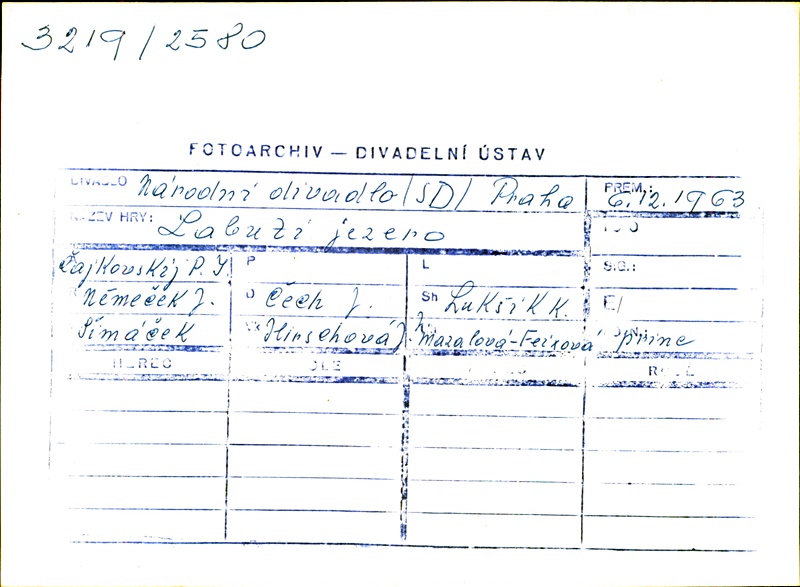 3219/2580
FOTOARCHIV — DIVADELNÍ ÚSTAV
DIVADLO Národní divadlo /SD/ Praha PREM.: 6.12.1963
NÁZEV HRY: Labutí jezero
Čajkovskij P. I. P L SIG.:
Němeček J. D Čech J. Sh Lukšík K. E/
Šimáček Hirschová J. Mazalová-Feixová princ
HEREC ROLE